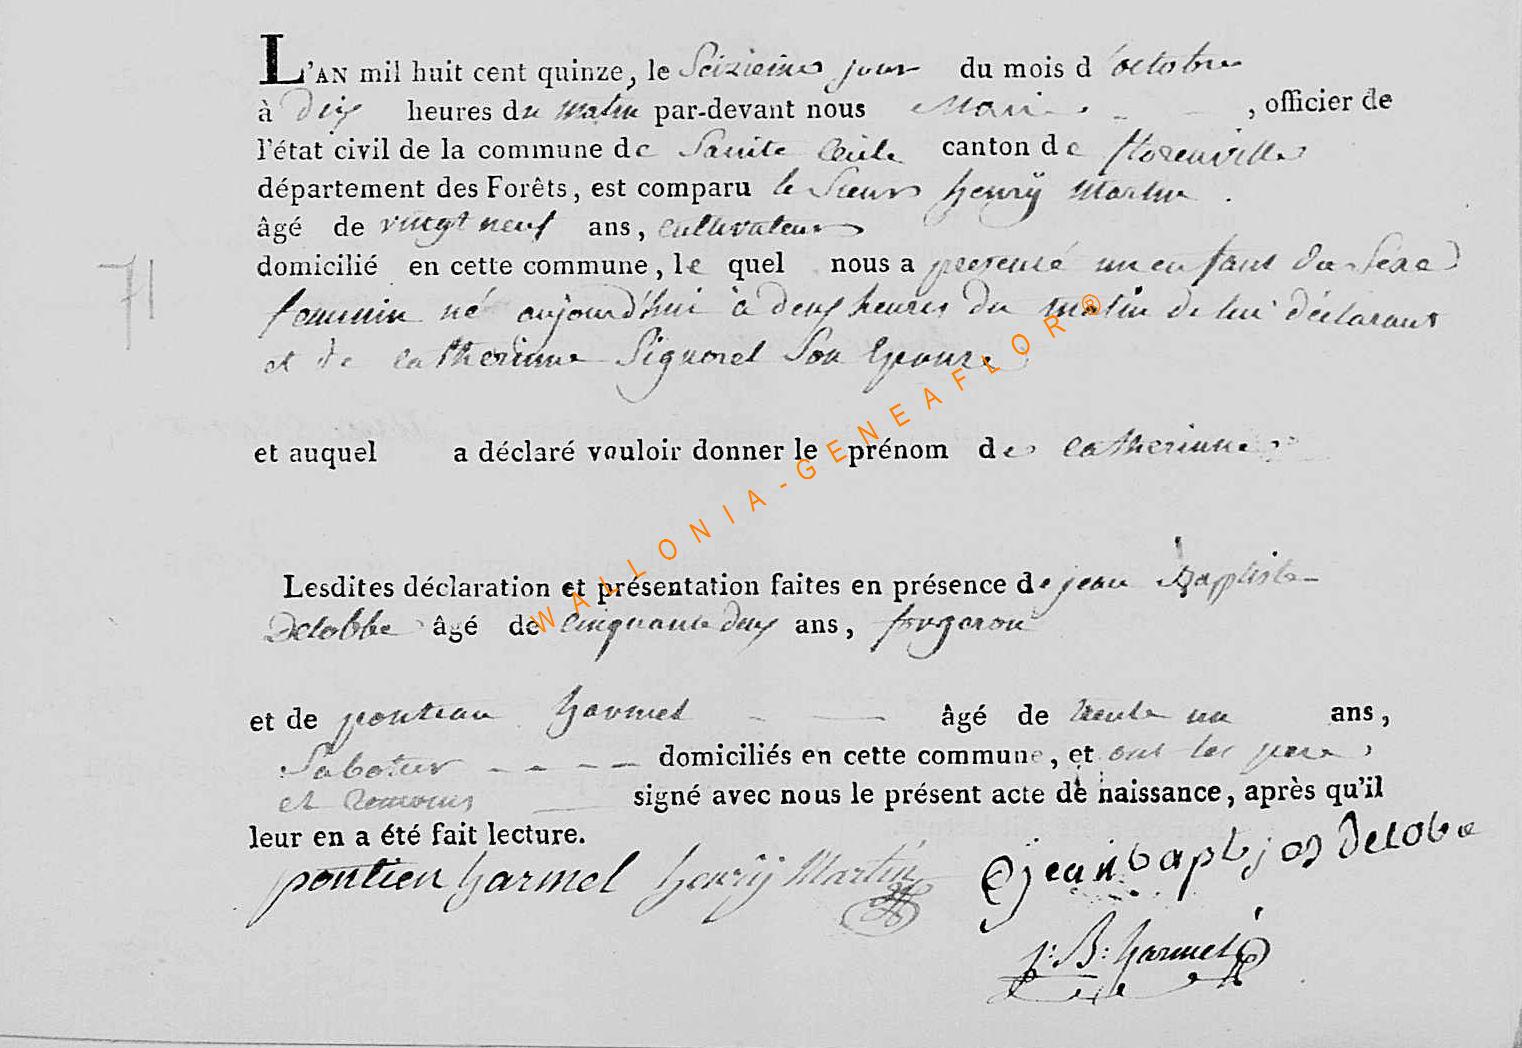 L'AN mil huit cent quinze, le Seizieme jour du mois d'octobre
à dix heures du matin par-devant nous Maire, officier de
l'état civil de la commune de Sainte Cecile canton de florenville
département des Forêts, est comparu le Sieur henrÿ Martin.
âgé de vingt neuf ans, cultivateur
71
domicilié en cette commune, le quel nous a presenté un enfant du Sexe
feminin né aujourd'hui à deux heures du matin de lui déclarant
et de catherinne Signorel Son Epouse
et auquel a déclaré vouloir donner le prénom de catherinne
Lesdites déclaration et présentation faites en présence de jean Baptiste
Delobbe âgé de cinquante deux ans, forgeron
et de pontien harmel âgé de trente un ans,
Saboteur domiciliés en cette commune, et ont les pere
et temoins signé avec nous le présent acte de naissance, après qu'il
leur en a été fait lecture.
pontien harmel henrÿ Martin jean bapt jos Delobe
j: B: harmel
WALLONIA-GENEAFLOR®